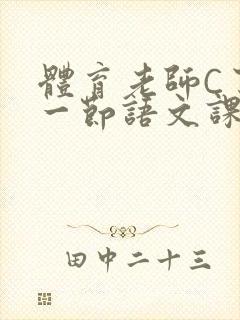 體育老師C
一節語文課
田中二十三